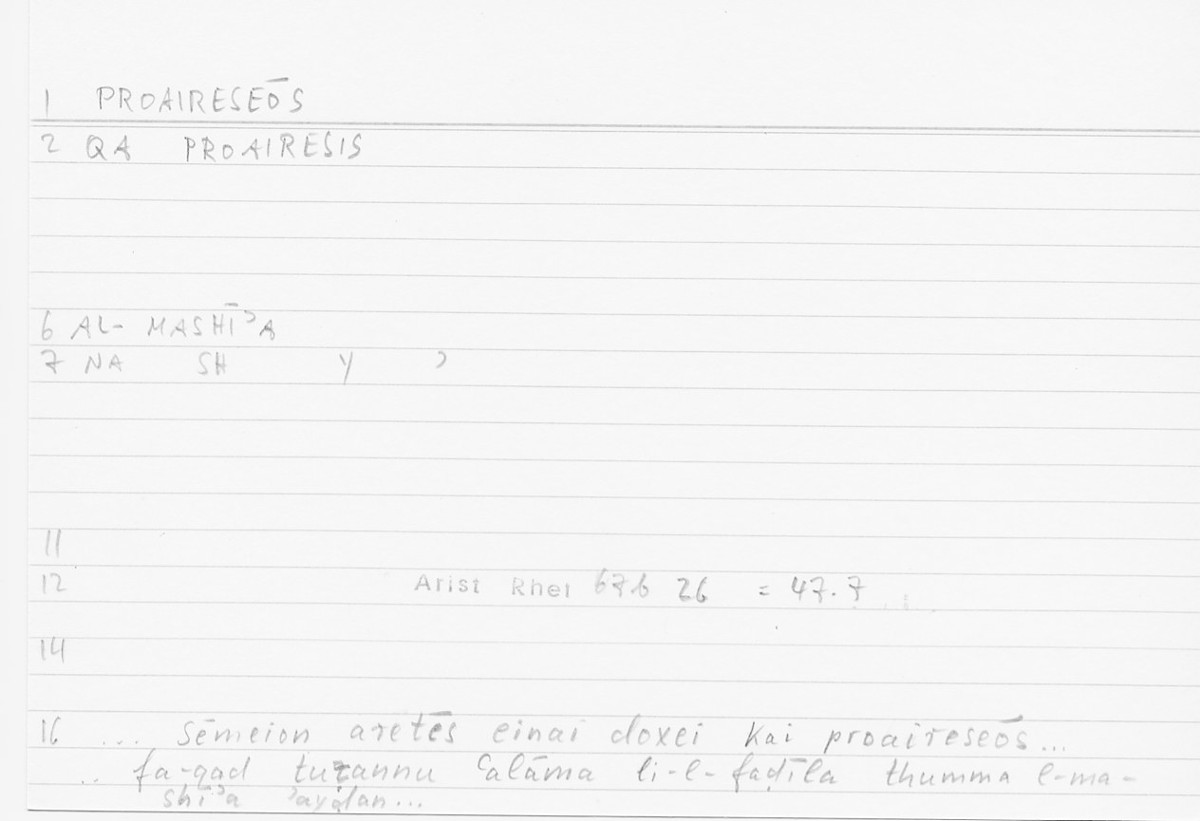 1 PROAIRESEŌS
2 QA PROAIRESIS
6 AL- MASHĪʾA
7 NA SH Y ʾ
11
12 Arist Rhet 67b 26 = 47.7
14
16 ... sēmeion aretēs einai doxei kai proaireseōs...
.. fa-qad tuẓannu ʿalāma li-l-faḍīla thumma l-ma-
shīʾa ʾayḍan...